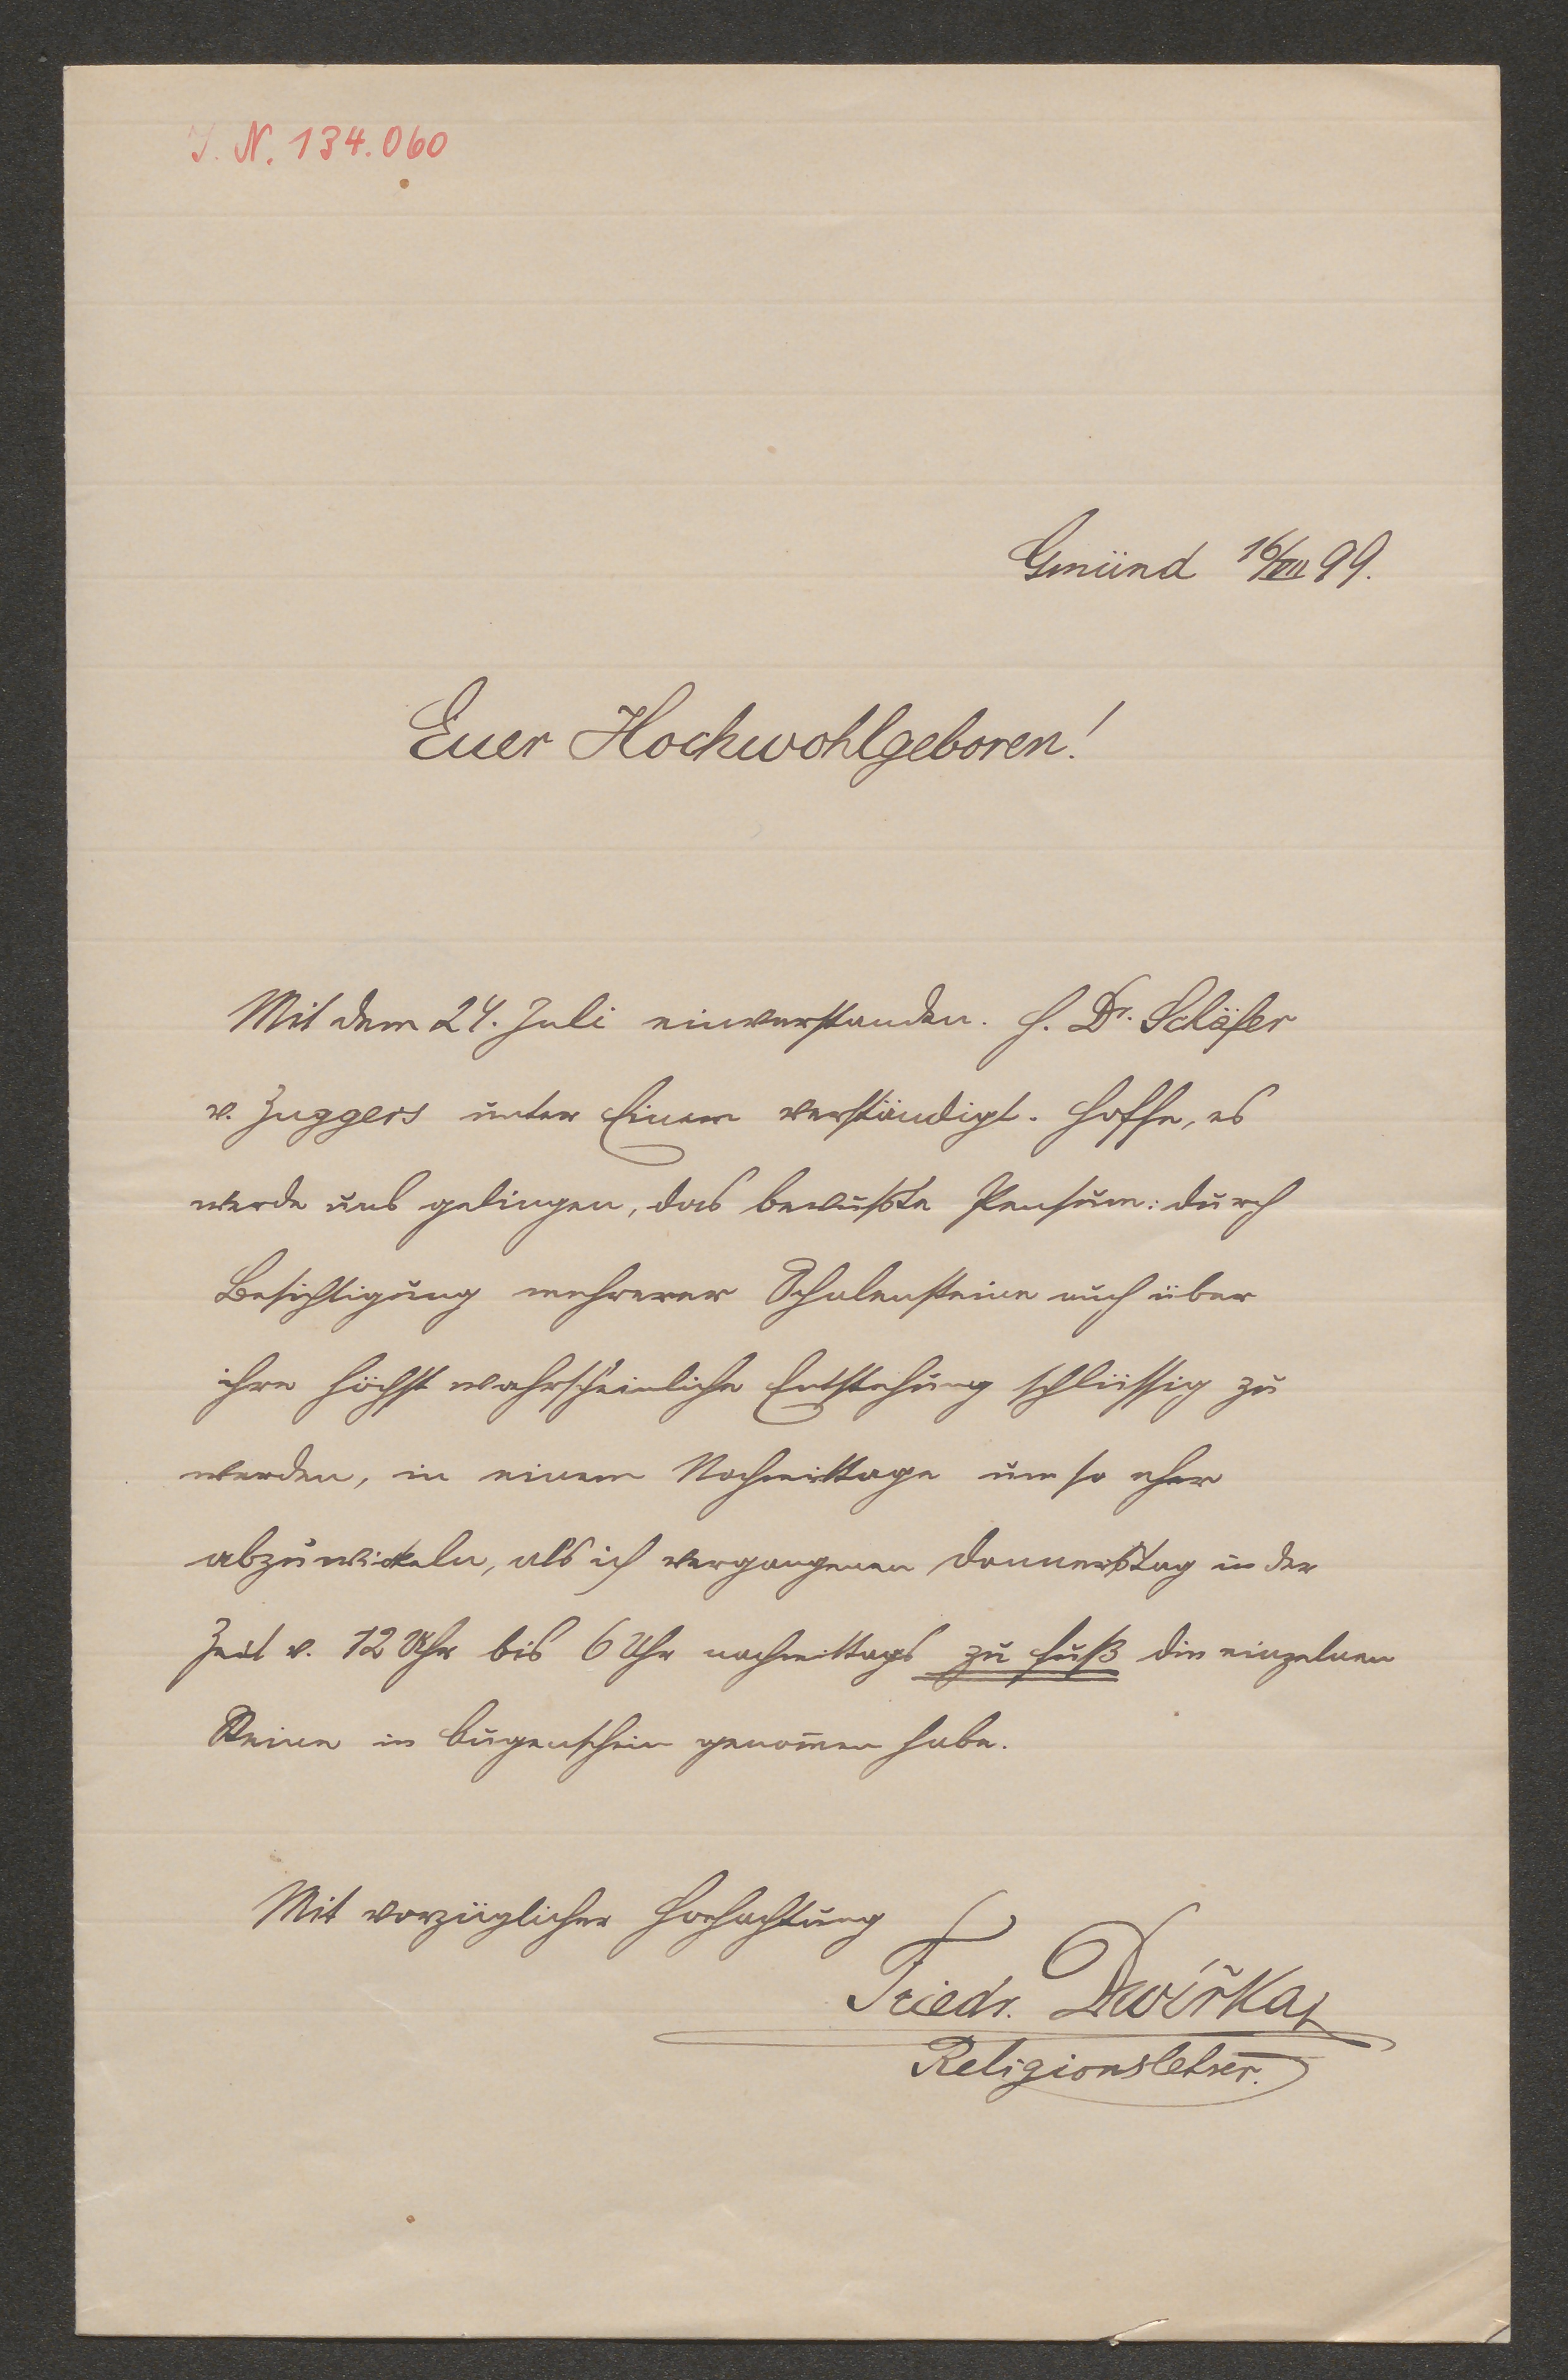 J. N. 134.060
Gmünd 16/VII 99.
Euer Hochwohlgeboren!
Mit dem 24. Juli einverstanden. H. Dr. Schäfer
v. Zuggers unter Einem verständigt. Hoffe, es
werde uns gelingen, das bewußte Pensum: durch
Besichtigung mehrerer Schalensteine auch über
ihre höchst wahrscheinliche Entstehung schlüssig zu
werden, in einem Nachmittage um so eher
abzuwickeln, als ich vergangenen Donnerstag in der
Zeit v. 12 Uhr bis 6 Uhr nachmittags zu Fuß die einzelnen
Steine in Augenschein genom̄en habe.
Mit vorzüglicher Hochachtung
Friedr. Dwířka,
Religionslehrer.